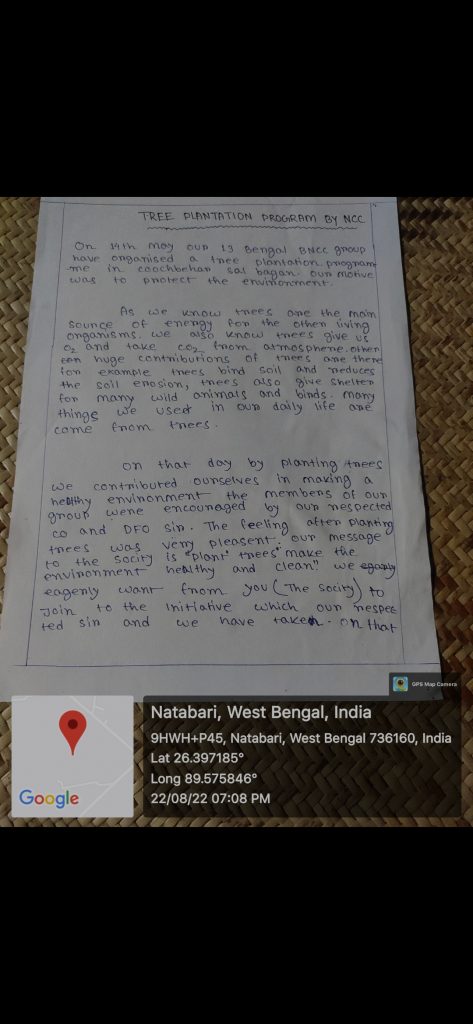 TREE PLANTATION PROGRAM BY NCC
On 14th may our 13 Bengal BNCC group
have organised a tree plantation program
-me in coochbehar sal bagan. our motive
was to protect the environment.
As we know trees are the main
source of energy for the other living
organisms. we also know trees give us
O2 and take CO2 from atmosphere. other
huge contributions of trees are there
for example trees bind soil and reduces
the soil erosion, trees also give shelter
for many wild animals and birds. many
things we used in our daily life are
come from trees.
on that day by planting trees
we contributed ourselves in making a
healthy environment the members of our
group were encouraged by our respected
co and DFO sir. The feeling after planting
trees was very pleasent. our message
to the socity is "plant trees" make the
environment healthy and clean" we
eagerly want from you (The socity) to
Join to the initiative which our respec
ted sir and we have taken. on that
GPS Map Camera
Natabari, West Bengal, India
9HWH+P45, Natabari, West Bengal 736160, India
Lat 26.397185°
Long 89.575846°
22/08/22 07:08 PM
Google